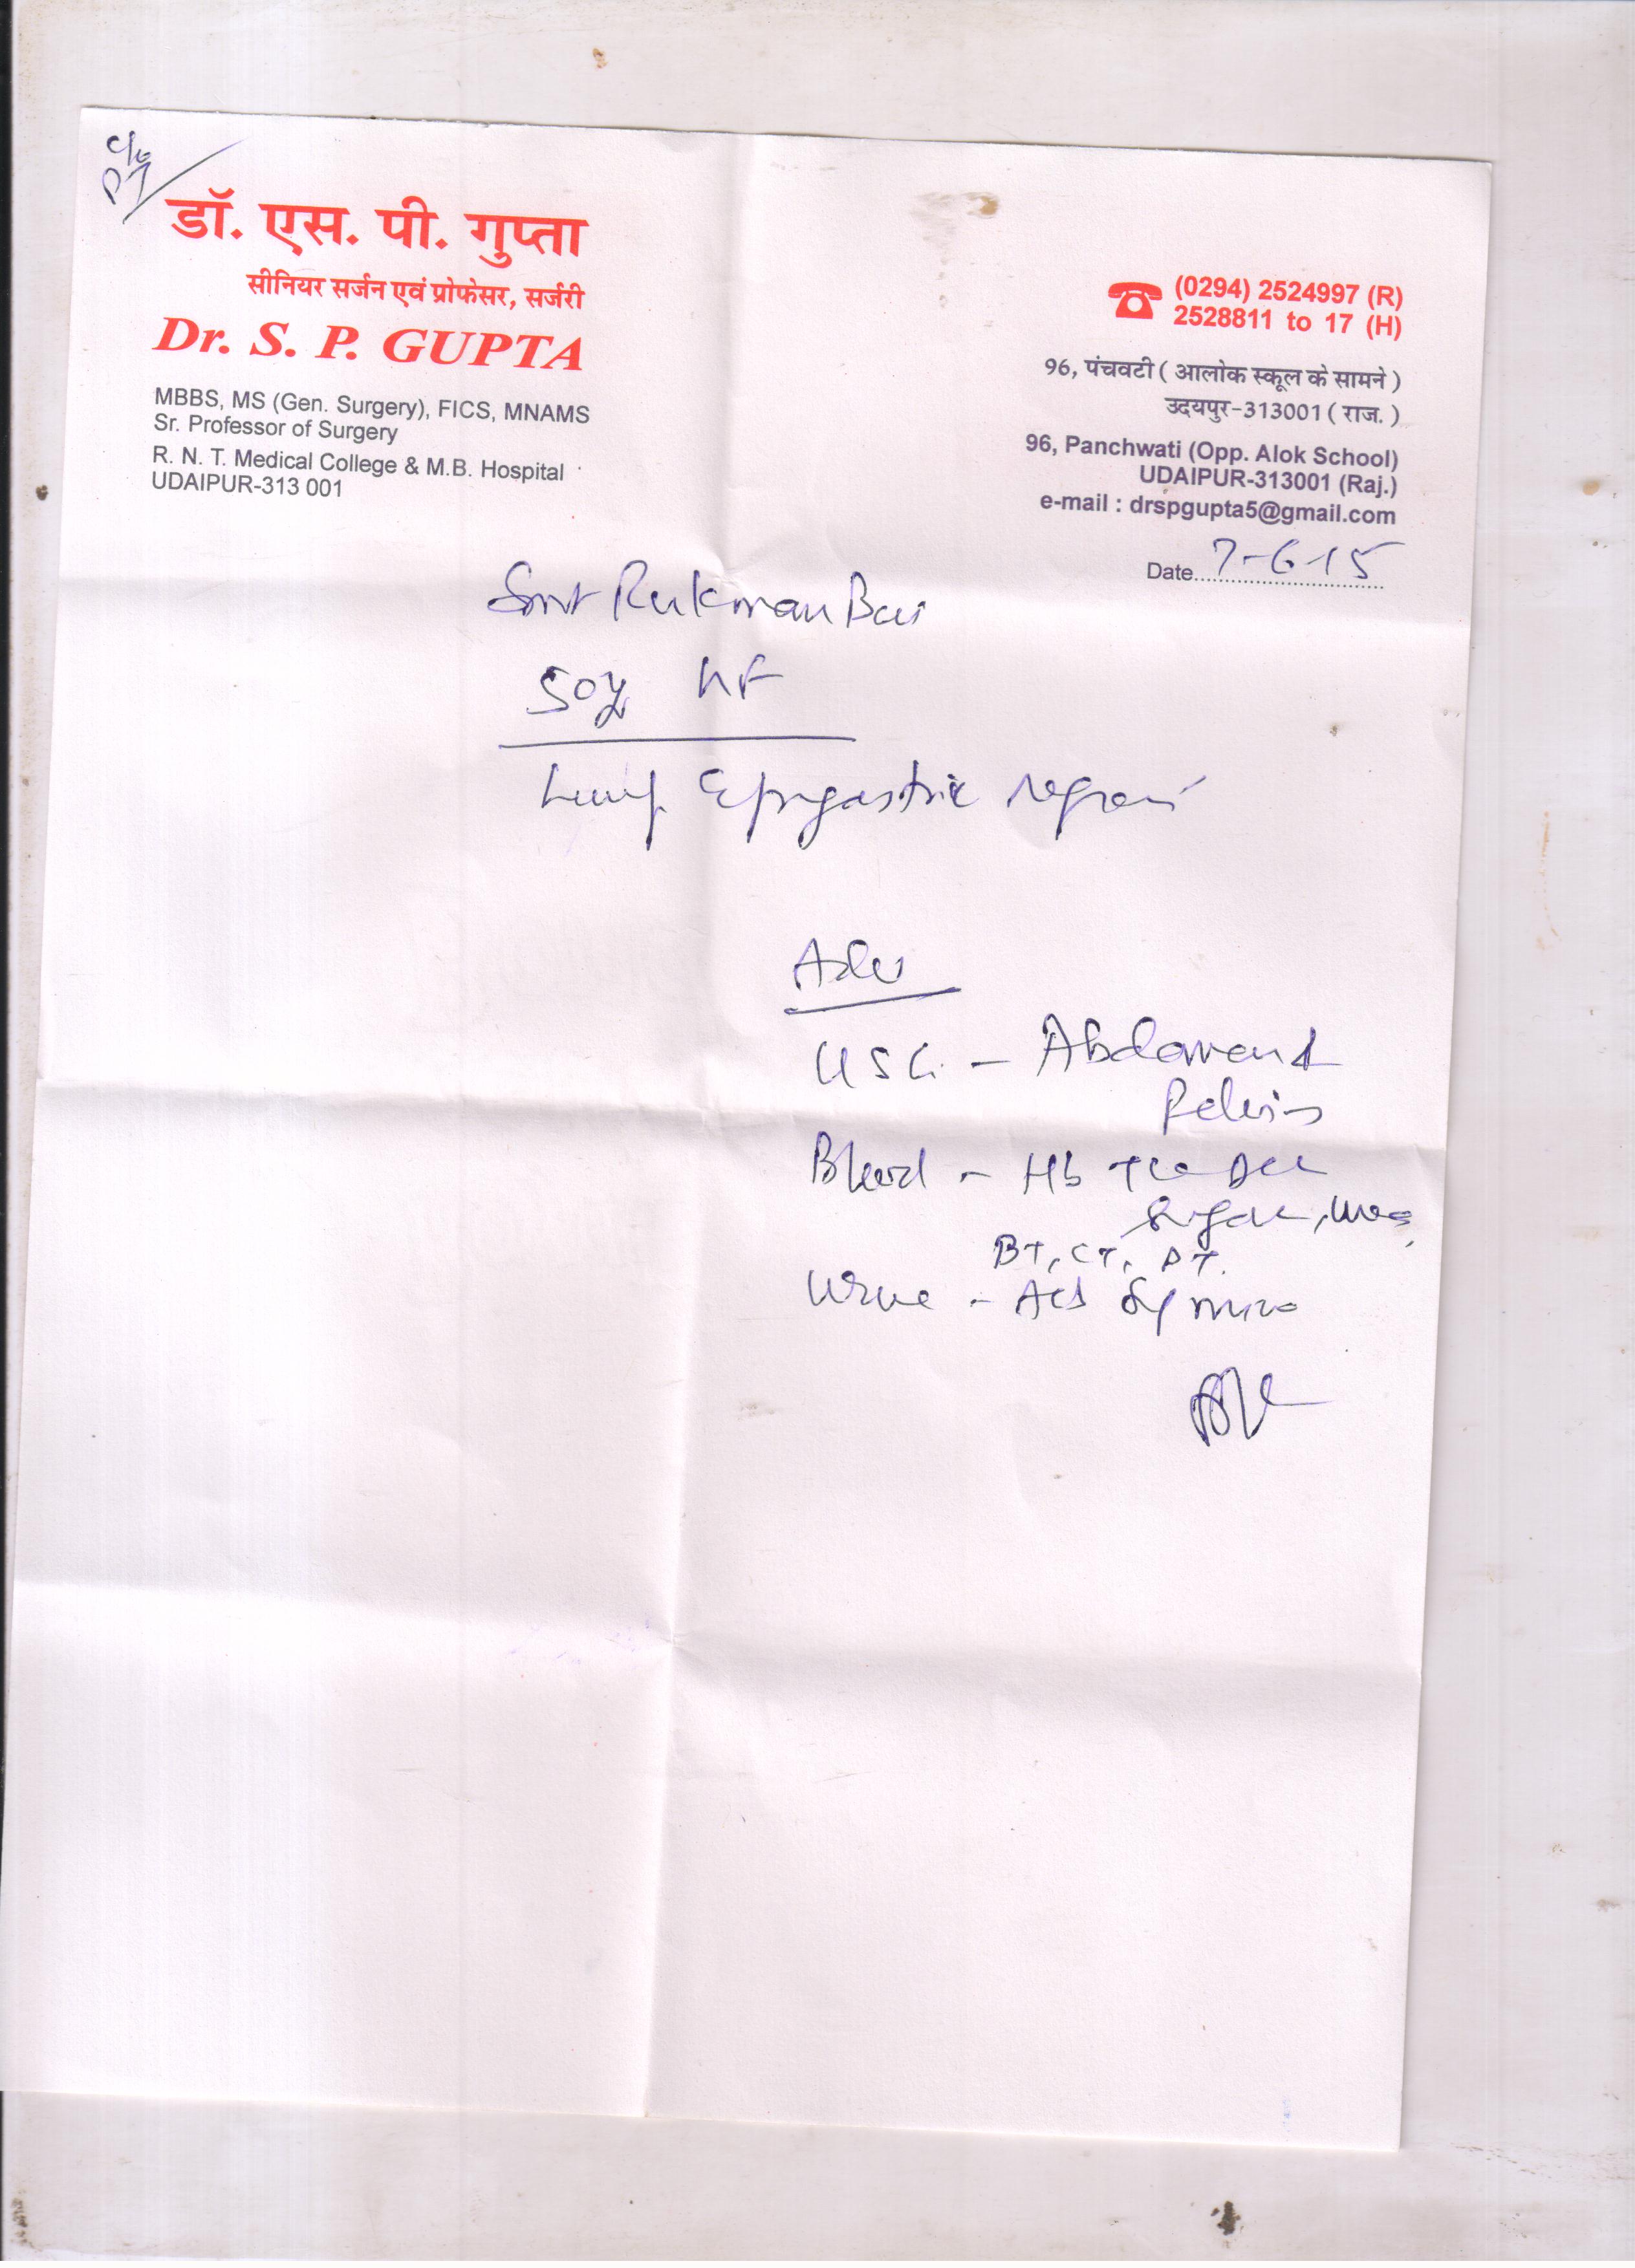 डॉ. एस. पी. गुप्ता
सीनियर सर्जन एवं प्रोफेसर, सर्जरी
Dr. S. P. GUPTA
MBBS, MS (Gen. Surgery), FICS, MNAMS
Sr. Professor of Surgery
R. N. T. Medical College & M.B. Hospital
UDAIPUR-313 001
(0294) 2524997 (R)
2528811 to 17 (H)
96, पंचवटी ( आलोक स्कूल के सामने )
उदयपुर-313001 ( राज. )
96, Panchwati (Opp. Alok School)
UDAIPUR-313001 (Raj.)
e-mail : drspgupta5@gmail.com
Date 7-6-15
Smt Rukman Bai
50y
Lump Epigastric region
Adv
USG - Abdomen &
Pelvis
Blood - Hb TLC DLC
Sugar, Urea,
BT, CT, PT.
Urine - Alb Sug micro